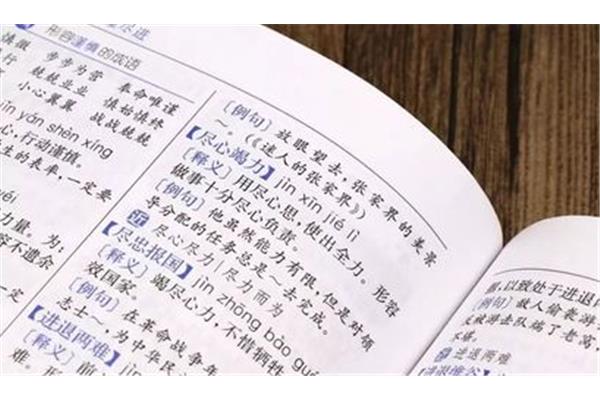 形容谨慎的成语
步步为营 奉命唯谨
兢兢业业 慎始慎终
小心翼翼 战战兢兢
jǐn yán shèn xíng
心,行动谨慎。
生的表率,一定要
力量。为:
容不遗余
一定
[例句] 放眼望去,张家界的美景
~。(《迷人的张家界》)
【尽心竭力】jìn xīn jié lì
[释义] 用尽心思,使出全力。形容
做事十分尽心负责。
[例句] 他虽然能力有限,但是对领
导分配的任务总是~去完成。
近 尽心尽力|尽力而为
【尽忠报国】jìn zhōng bào guó
[释义] 竭尽心力,不惜牺牲
效国家。
[例句] 在革命战争年
志士~,为中华民
【进退两难】
[释义] 前
难。形
以致处于进退
[例句] 敌人偷袭游
被游击队端了老窝,
进退两难